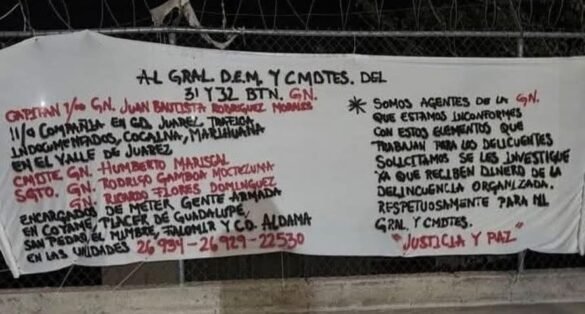 AL GRAL. D.E.M. Y CMDTES. DEL
31 Y 32 BTN. GN.
CAPITAN 1/OO GN. JUAN BAUTISTA RODRIGUEZ MORALES
11/a COMPAÑIA EN CD. JUAREZ, TRAFICA
INDOCUMENTADOS, COCAINA, MARIHUANA
EN EL VALLE DE JUAREZ
CMDTE GN. HUMBERTO MARISCAL
SGTO. GN. RODRIGO GAMBOA MOCTEZUMA
GN. RICARDO FLORES DOMINGUEZ
ENCARGADOS DE METER GENTE ARMADA
EN COYAME, PLACER DE GUADALUPE,
SAN PEDRO, EL MIMBRE, FALOMIR Y CD. ALDAMA
EN LAS UNIDADES 26934-26929-22530
* SOMOS AGENTES DE LA GN.
QUE ESTAMOS INCONFORMES
CON ESTOS ELEMENTOS QUE
TRABAJAN PARA LOS DELICUENTES
SOLICITAMOS SE LES INVESTIGUE
YA QUE RECIBEN DINERO DE LA
DELINCUENCIA ORGANIZADA.
RESPETUOSAMENTE PARA MI
GRAL. Y CMDTES.
"JUSTICIA Y PAZ"